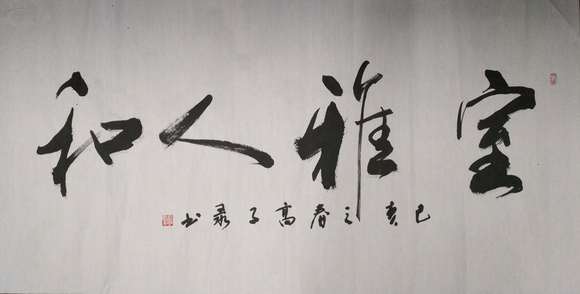 室雅人和
己亥之春高子景书